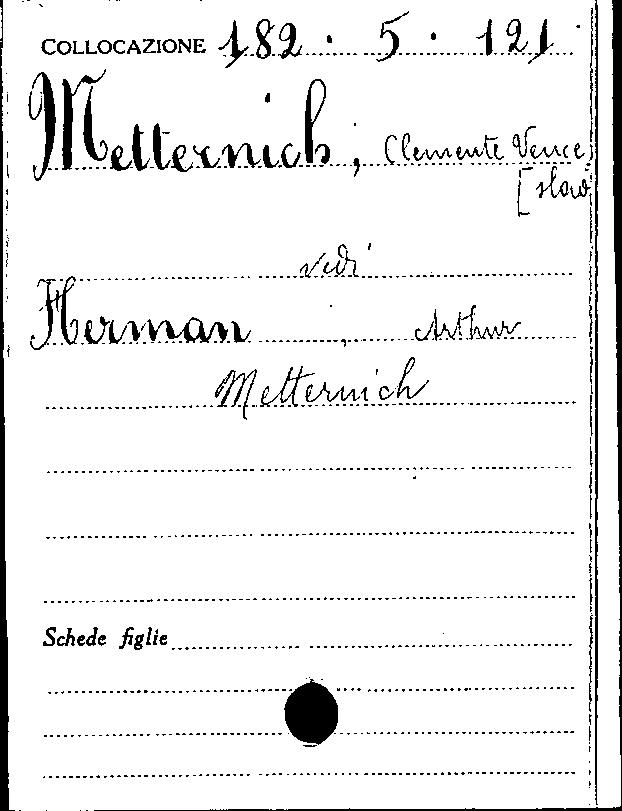 COLLOCAZIONE 182 · 5 · 121
Metternich, Clemente Vence
[slao
vedi
Herman, Arthur
Metternich
Schede figlie